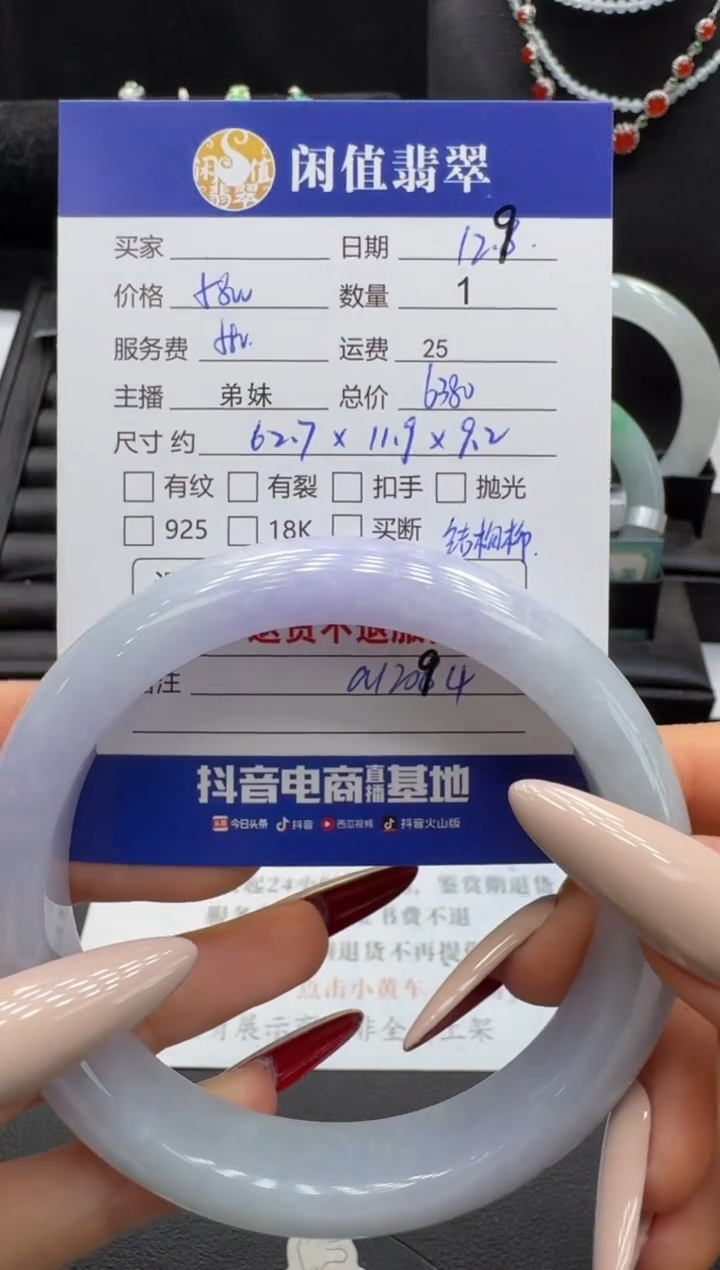 闲值翡翠
闲值翡翠
买家 日期 12.9.
价格 58w 数量 1
服务费 运费 25
主播 弟妹 总价 6380
尺寸约 62.7 x 11.9 x 9.2
有纹 有裂 扣手 抛光
925 18K 买断
退货不退服
注 a12094
抖音电商直播基地
今日头条 抖音 西瓜视频 抖音火山版
起24小 鉴赏期退货
书费不退
退货不再提
点击小黄车
展示 非全 上架